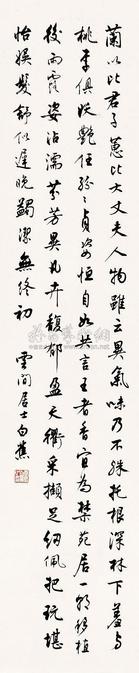 蘭以比君子蕙比大丈夫人物雖云異氣味乃不殊托根深林下羞与
桃李俱妖艷任紛紛貞姿恒自如共言王者香宜為禁苑居一朝移植
後雨露姿沾濡芬芳異凡卉馥郁盈天衢采擷足紉佩把玩堪
怡娛髮飾似遲晚蠲潔無終初 雲間居士白蕉